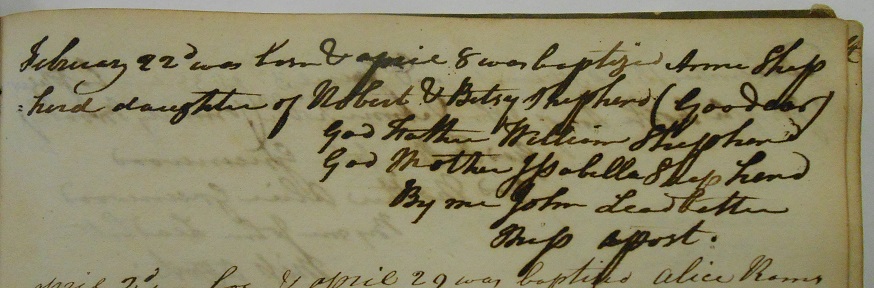 February 22d was born & april 8 was baptized Anne Shep
=herd daughter of Robert & Betsy Shepherd (Goodear)
God Father William Shepherd
God Mother Issabella Shepherd
By me John Leadbetter
Miss apost.
april 2d & april 29 was baptized alice Rams